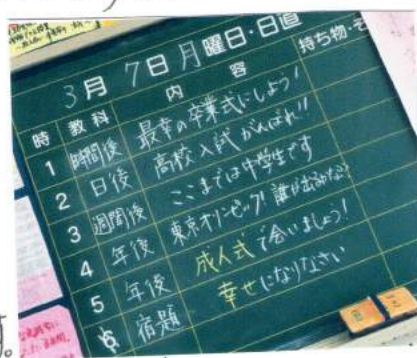 3月 7日 月曜日・日直
時 教科 内 容 持ち物・そ
1 時間後 最幸の卒業式にしよう!
2 日後 高校入試がんばれ!!
3 週間後 ここまでは中学生です
4 年後 東京オリンピック!誰が出るかな?
5 年後 成人式で会いましょう!
宿題 幸せになりなさい
す。